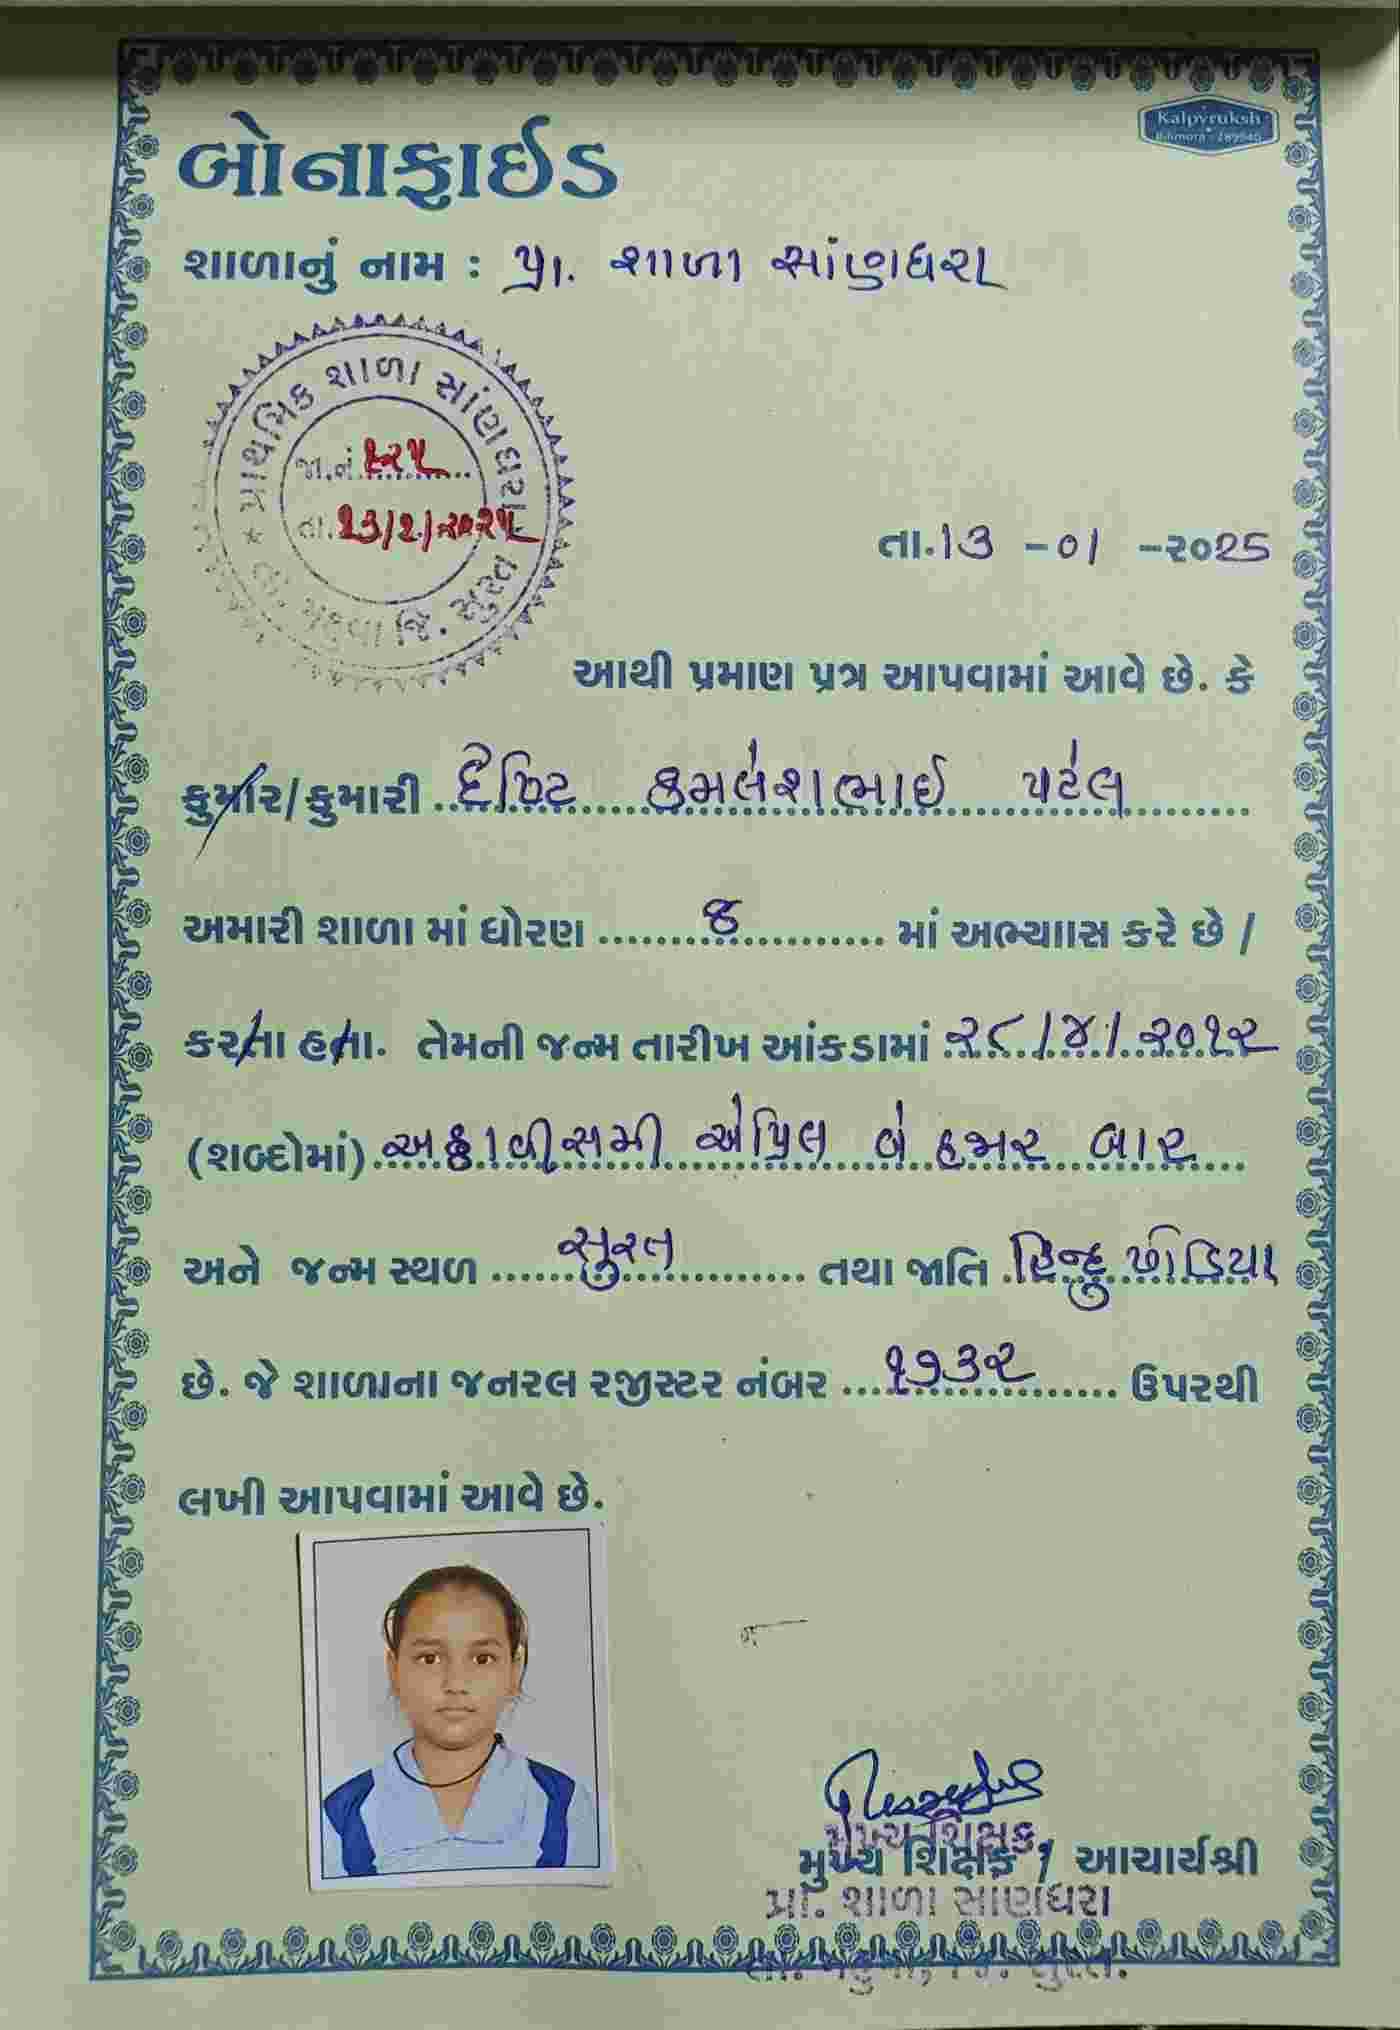 Kalpvruksh
Bilimora - 789940
બોનાફાઈડ
શાળાનું નામ : પ્રા. શાળા સાંણધરા
પ્રાથમિક શાળા સાંણધરા
જા.નં. ૬૨૫
તા. ૧૩/૧/૨૦૨૫
તા. મહુવા જિ. સુરત
તા.13 -01 -૨૦25
આથી પ્રમાણ પત્ર આપવામાં આવે છે. કે
કુમાર/કુમારી કમલેશભાઈ પટેલ
અમારી શાળા માં ધોરણ ૭ માં અભ્યાસ કરે છે /
કરતા હતા. તેમની જન્મ તારીખ આંકડામાં ૨૮/૪/૨૦૧૨
(શબ્દોમાં) અઠ્ઠાવીસમી એપ્રિલ બે હજાર બાર
અને જન્મ સ્થળ સુરત તથા જાતિ હિન્દુ ધોડિયા
છે. જે શાળાના જનરલ રજીસ્ટર નંબર ૧૭૩૨ ઉપરથી
લખી આપવામાં આવે છે.
મુખ્ય શિક્ષક
મુખ્ય શિક્ષક / આચાર્યશ્રી
પ્રા. શાળા સાંણધરા
તા. મહુવા, જિ. સુરત.